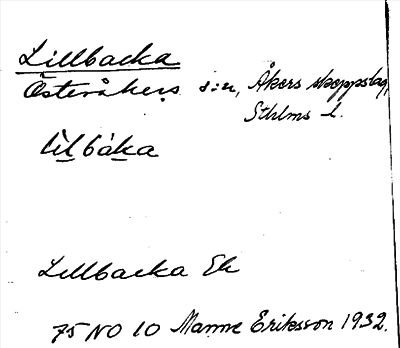 Lillbacka
Österåkers s:n, Åkers skeppslag,
Sthlms l.
lilbaka
Lillbacka Ek
75 NO 10 Manne Eriksson 1932.